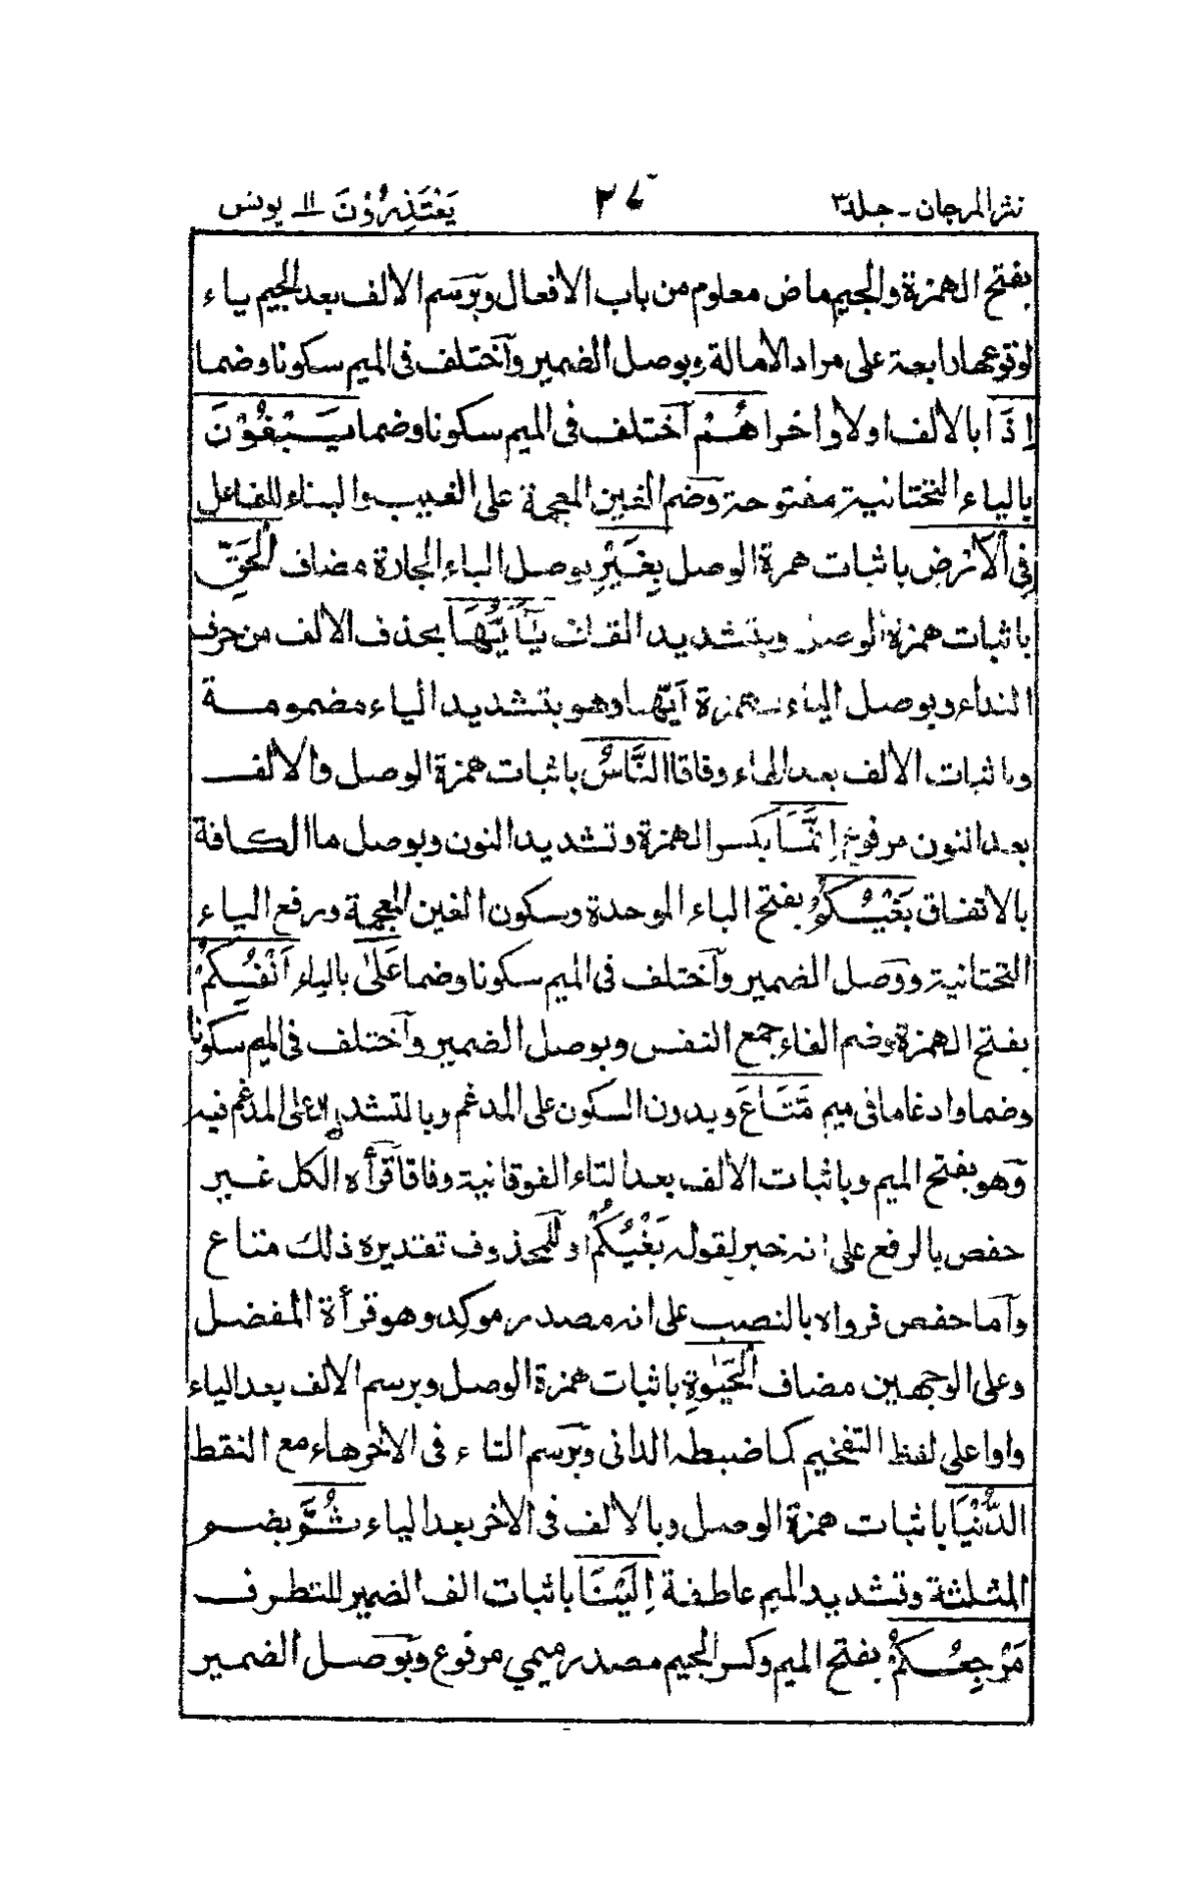 نثر المرجان ـ جلد ٣
يَعْتَذِرُوْنَ ١١ يونس
بفتح الهمزة والجيم ماض معلوم من باب الافعال وبرسم الالف بعد الجيم ياء
لوقوعها رابعة على مراد الامالة وبوصل الضمير وآختلف فى الميم سكونا وضما
اِذَا بالالف اولا وآخرا هُمْ آختلف فى الميم سكونا وضما يَبْغُوْنَ
بالياء التحتانية مفتوحة وضم الغين المعجمة على الغيب والبناء للفاعل
فِى الْاَرْضِ باثبات همزة الوصل بِغَيْرِ بوصل الباء الجارة مضاف الْحَقِّ
باثبات همزة الوصل وبتشديد القاف يٰٓاَيُّهَا بحذف الالف من حرف
النداء وبوصل الياء بهمزة آيّها وهو بتشديد الياء مضمومة
وباثبات الالف بعد الهاء وفاقا النَّاسُ باثبات همزة الوصل والالف
بعد النون مرفوع اِنَّمَا بكسر الهمزة وتشديد النون وبوصل ما الكافة
بالاتفاق بَغْيُكُمْ بفتح الباء الموحدة وسكون الغين المعجمة ورفع الياء
التحتانية ووصل الضمير وآختلف فى الميم سكونا وضما عَلٰٓى بالياء اَنْفُسِكُمْ
بفتح الهمزة وضم الفاء جمع النفس وبوصل الضمير وآختلف فى الميم سكونا
وضما وادغاما فى ميم مَّتَاعَ وبدون السكون على المدغم وبالتشديد على المدغم فيه
وَهو بفتح الميم وباثبات الالف بعد التاء الفوقانية وفاقا قرأه الكل غير
حفص بالرفع على انه خبر لقوله بَغْيُكُمْ او للمحذوف تقديره ذلك متاع
وآما حفص فرواه بالنصب على انه مصدر موكد وهو قرأة المفضل
وعلى الوجهين مضاف الْحَيٰوةِ باثبات همزة الوصل وبرسم الالف بعد الياء
واوا على لفظ التفخيم كما ضبطه الدانى وبرسم التاء فى الآخر هاء مع النقط
الدُّنْيَا باثبات همزة الوصل وبالالف فى الآخر بعد الياء ثُمَّ بضم
المثلثة وتشديد الميم عاطفة اِلَيْنَا باثبات الف الضمير للتطرف
مَرْجِعُكُمْ بفتح الميم وكسر الجيم مصدر ميمي مرفوع وبوصل الضمير